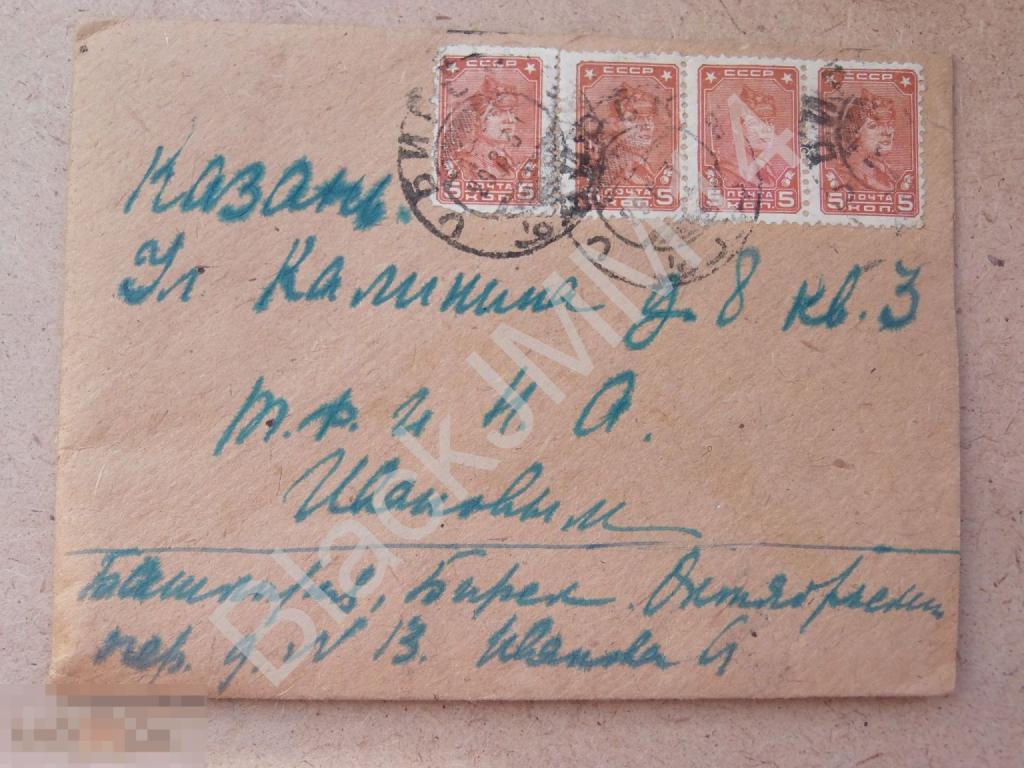 СССР СССР СССР СССР
5 ПОЧТА КОП. 5 5 ПОЧТА КОП. 5 5 ПОЧТА КОП. 5 5 ПОЧТА КОП. 5
Казань.
Ул Калинина д. 8 кв. 3
Т. Ф. и Н А.
Ивановым
Башкирия, Бирск Октябрьский
пер. д N 13. Иванова А
BlackJMM 4